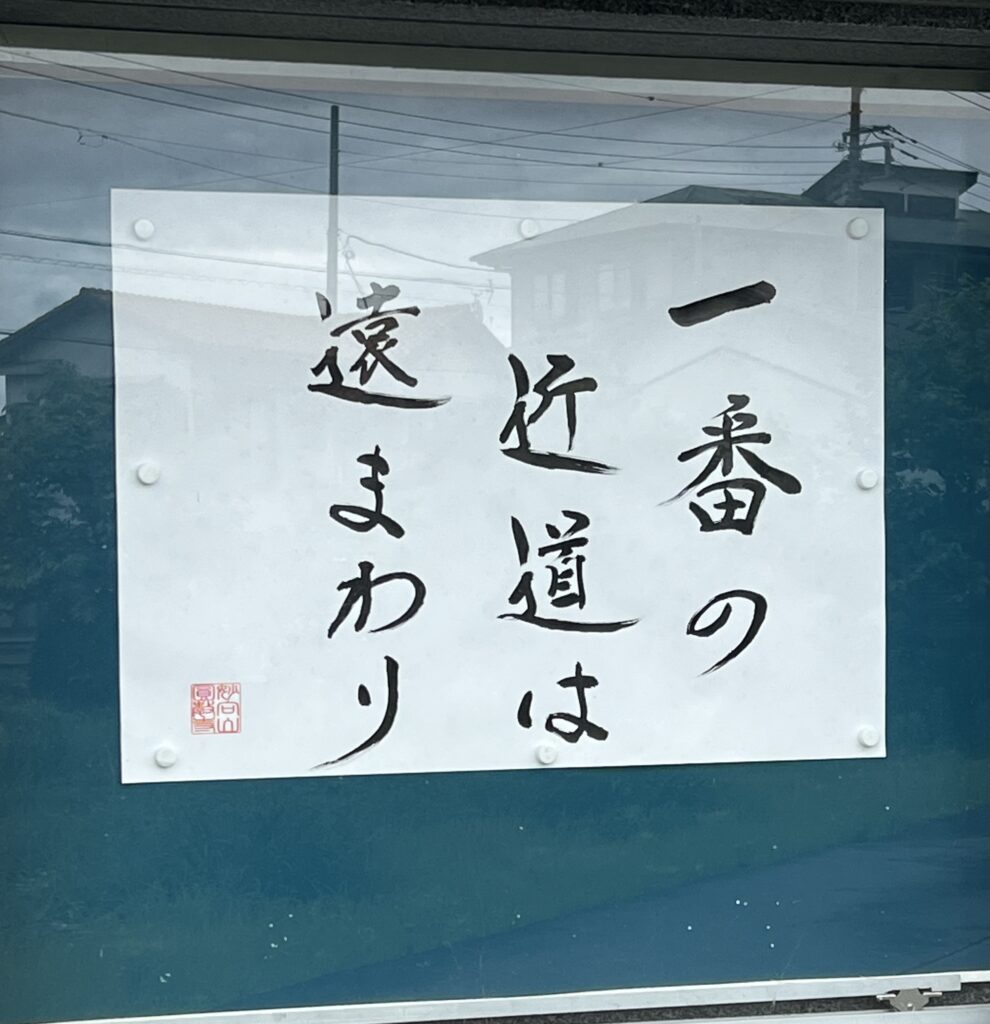 一番の
近道は
遠まわり